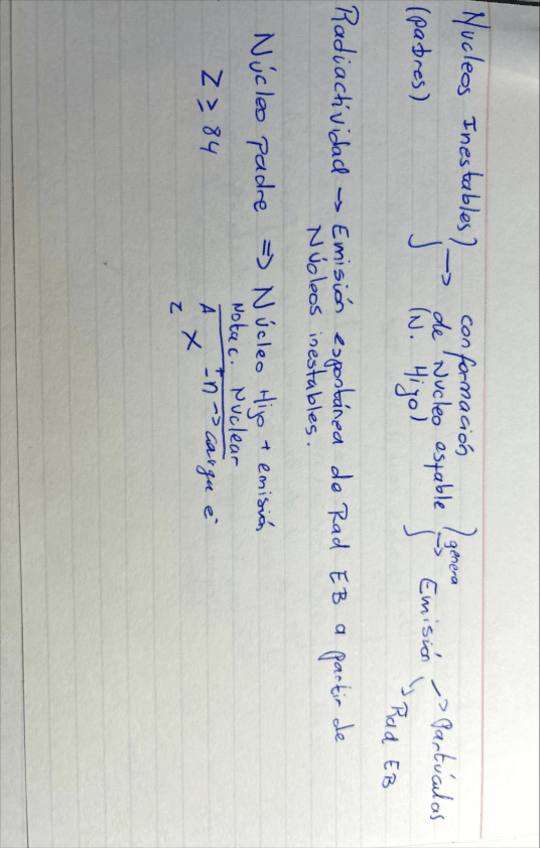 Nucleos Inestables) → conformación ) genera → Emisión → Partículas
(padres) de Nucleo estable ↳ Rad EB
(N. Hijo)
Radiactividad → Emisión espontánea de Rad EB a partir de
Núcleos inestables.
Núcleo padre => Núcleo Hijo + emisión
Z ≥ 84 Notac. Nuclear
A X ± n → carga e⁻
Z